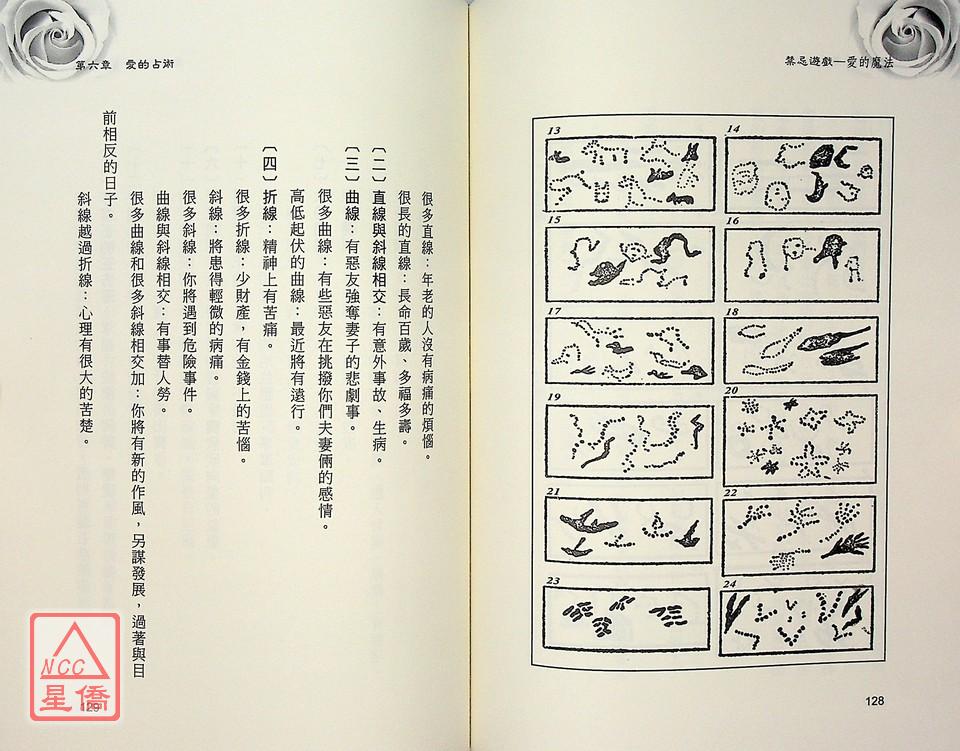 禁忌遊戲—愛的魔法
13
14
15
16
17
18
19
20
21
22
23
24
128
第六章 愛的占術
很多直線：年老的人沒有病痛的煩惱。
很長的直線：長命百歲、多福多壽。
〔二〕直線與斜線相交：有意外事故、生病。
〔三〕曲線：有惡友強奪妻子的悲劇事。
很多曲線：有些惡友在挑撥你們夫妻倆的感情。
高低起伏的曲線：最近將有遠行。
〔四〕折線：精神上有苦痛。
很多折線：少財產，有金錢上的苦惱。
斜線：將患得輕微的病痛。
很多斜線：你將遇到危險事件。
曲線與斜線相交：有事替人勞。
很多曲線和很多斜線相交加：你將有新的作風，另謀發展，過著與目
前相反的日子。
斜線越過折線：心理有很大的苦楚。
129
NCC
星僑